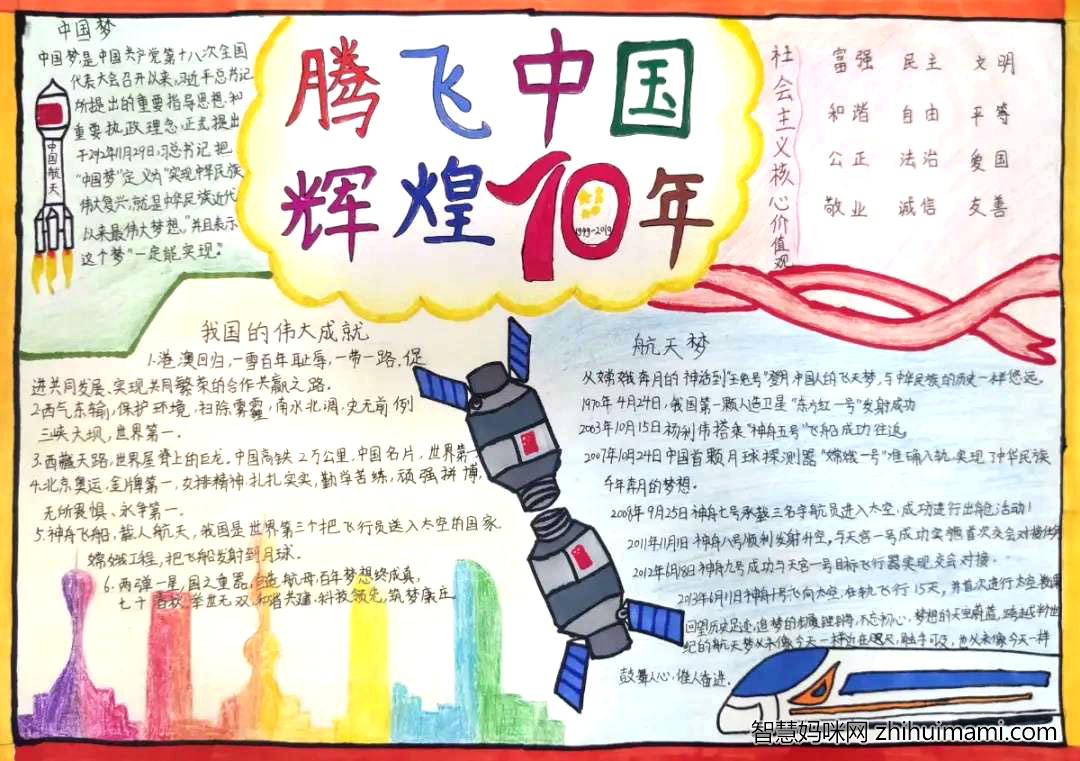 中国梦
中国梦,是中国共产党第十八次全国
代表大会召开以来,习近平总书记
所提出的重要指导思想和
重要执政理念,正式提出
于2012年11月29日,习总书记把
“中国梦”定义为“实现中华民族
伟大复兴,就是中华民族近代
以来最伟大梦想。”并且表示
这个梦“一定能实现。”
中国航天
腾飞中国
辉煌70年
1949-2019
社会主义核心价值观
富强 民主 文明
和谐 自由 平等
公正 法治 爱国
敬业 诚信 友善
我国的伟大成就
1.港澳回归,一雪百年耻辱,一带一路,促
进共同发展、实现共同繁荣的合作共赢之路.
2.西气东输,保护环境,扫除雾霾,南水北调,史无前例
三峡大坝,世界第一.
3.西藏天路,世界屋脊上的巨龙。中国高铁2万公里,中国名片,世界第一
4.北京奥运,金牌第一,女排精神,扎扎实实,勤学苦练,顽强拼搏,
无所畏惧、永争第一.
5.神舟飞船,载人航天,我国是世界第三个把飞行员送入太空的国家.
嫦娥工程,把飞船发射到月球.
6.两弹一星,国之重器,台造航母,百年梦想终成真,
七十春秋,举世无双,和谐共建,科技领先,筑梦康庄
航天梦
从嫦娥奔月的神话到“玉兔号”登月,中国人的飞天梦,与中华民族的历史一样悠远。
1970年4月24日,我国第一颗人造卫星“东方红一号”发射成功
2003年10月15日杨利伟搭乘“神舟五号”飞船成功往返。
2007年10月24日中国首颗月球探测器“嫦娥一号”准确入轨,实现了中华民族
千年奔月的梦想.
2008年9月25日神舟七号承载三名宇航员进入太空,成功进行出舱活动!
2011年11月1日神舟八号顺利发射升空,与天宫一号成功实施首次交会对接任务
2012年6月18日神舟九号成功与天宫一号目标飞行器实现交会对接.
2013年6月11日神舟十号飞向太空,在轨飞行15天,并首次进行太空授课
回望历史足迹,追梦的步履铿锵,不忘初心,梦想的天空蔚蓝,跨越半世
纪的航天梦从未像今天一样近在咫尺,触手可及,也从未像今天一样
鼓舞人心,催人奋进.
智慧妈咪网 zhihuimami.com